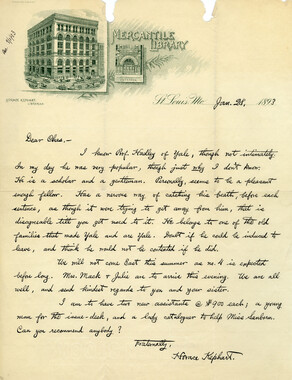 MERCANTILE
LIBRARY
HORACE KEPHART,
LIBRARIAN.
St. Louis, Mo. Jan. 28, 1893
Dear Chas. —
I know Prof. Hadley of Yale, though not intimately.
In my day he was very popular, though just why I don't know.
He is a scholar and a gentleman. Personally, seems to be a pleasant
enough fellow. Has a nervous way of catching his breath, before each
sentence, as though it were trying to get away from him, that is
disagreeable till you get used to it. He belongs to one of the old
families that made Yale and are Yale. Doubt if he could be induced to
leave, and think he would not be contented if he did.
We will not come East this summer as no. 4 is expected
before long. Mrs. Mack & Julie are to arrive this evening. We are all
well, and send kindest regards to you and your sister.
I am to have two new assistants @ $900 each; a young
man for the issue-desk, and a lady cataloguer to help Miss Sanborn.
Can you recommend anybody?
Fraternally,
Horace Kephart.